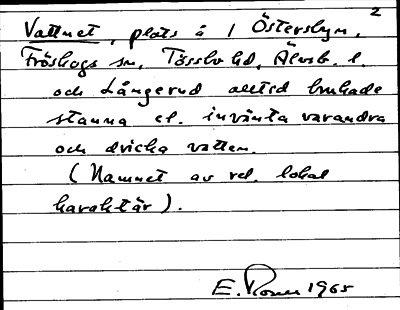 2
Vattnet, plats å 1 Österslyn,
Fröskogs sn, Tössbo hd, Älvsb. l.
och Långerud alltid brukade
stanna el. invänta varandra
och dricka vatten.
(Namnet av rel. lokal
karaktär).
E. 1965